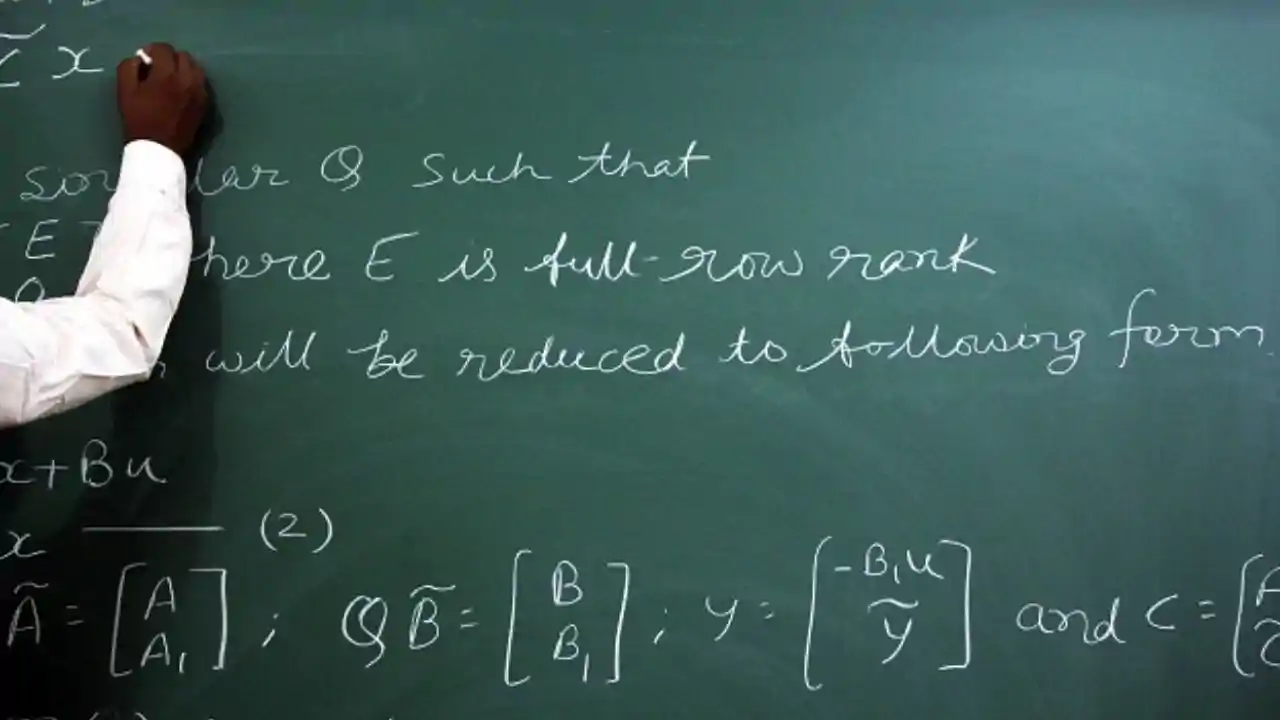 x
Q such that
E here E is full-row rank
will be reduced to following form
x+Bu
x (2)
Ã = [A A₁] ; Q B̃ = [B B₁] ; y = [-B₁u ỹ] and C = [